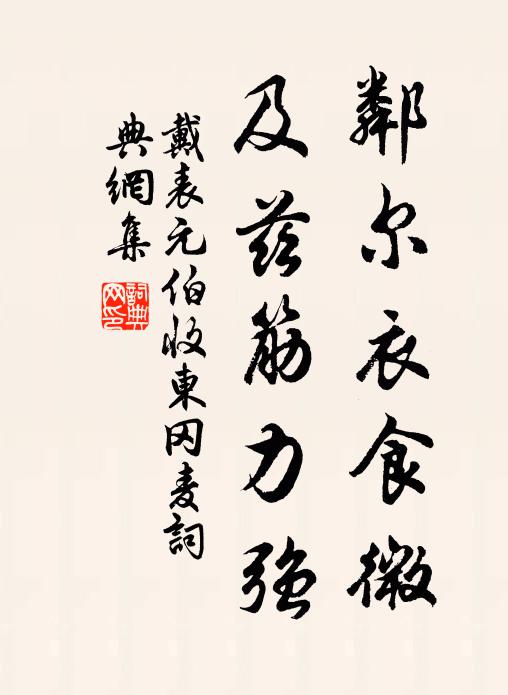 鄰尔衣食微
及茲筋力強
戴表元伯收東冈麦詞
典網集
詞典网印